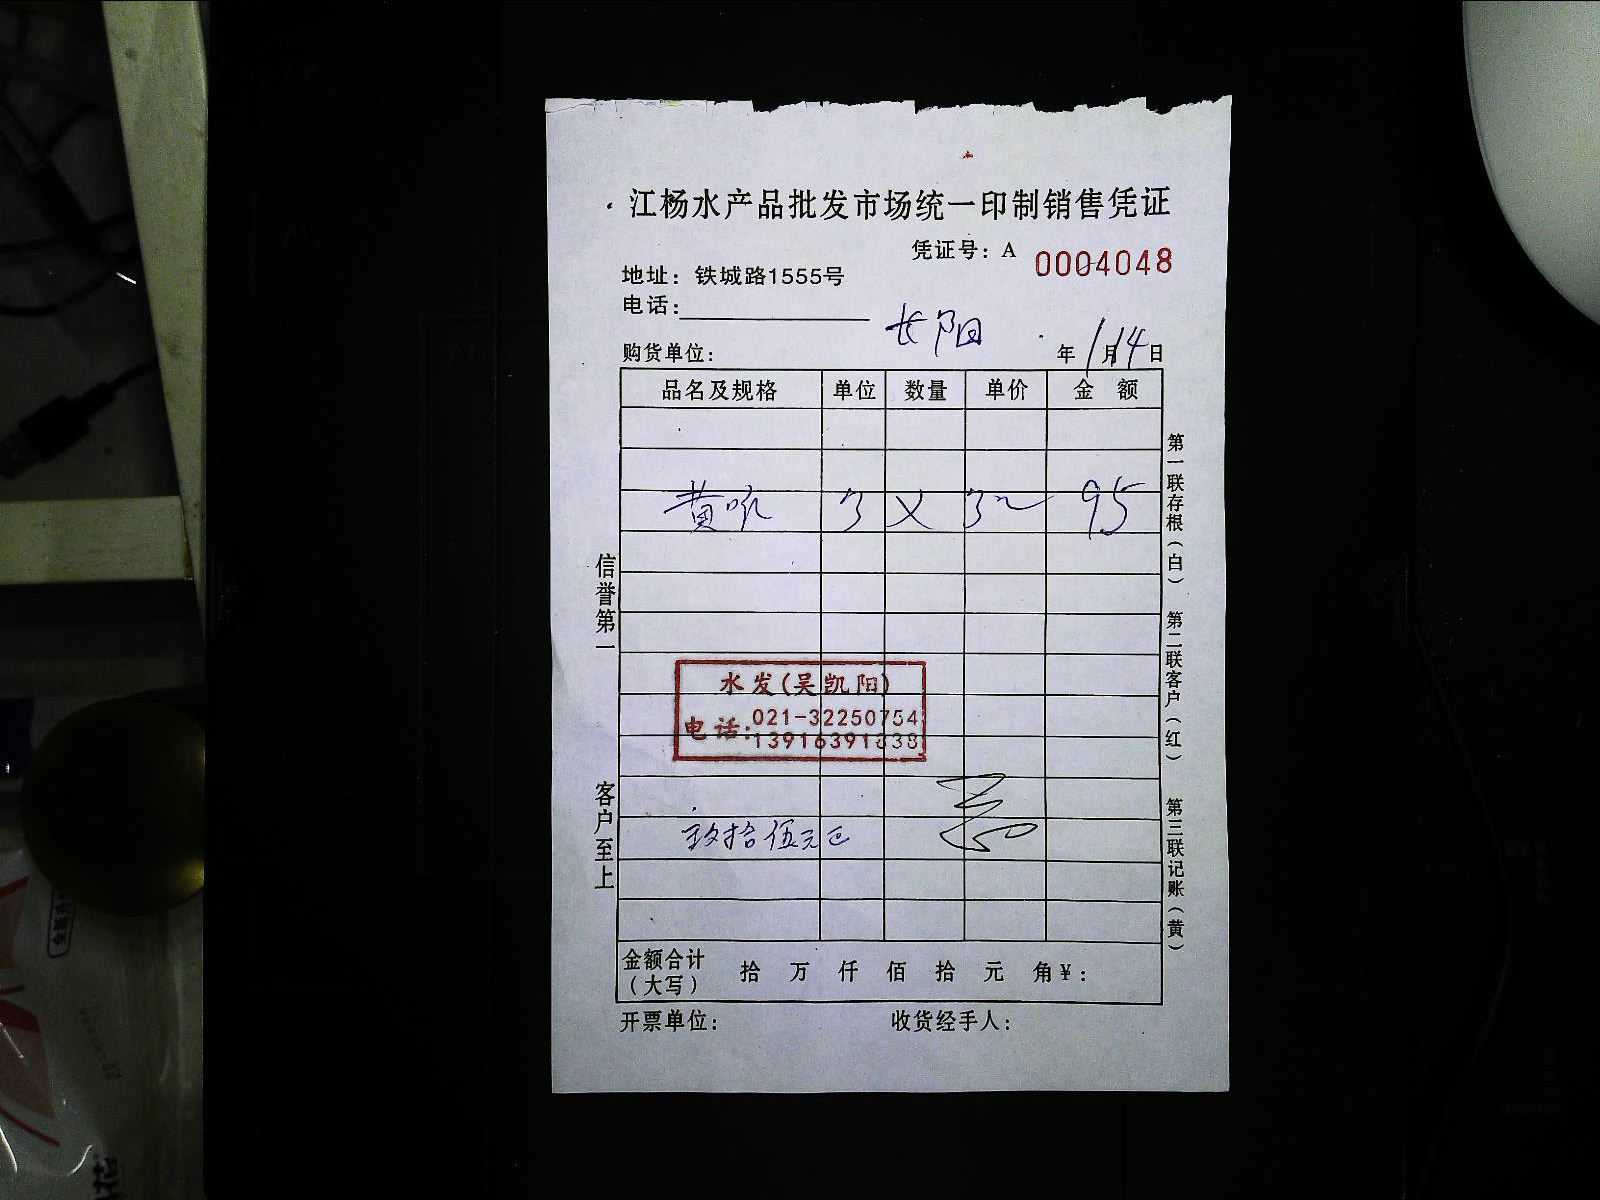 江杨水产品批发市场统一印制销售凭证
凭证号：A 0004048
地址：铁城路1555号
电话：
长阳
购货单位： 年 1月14日
品名及规格 单位 数量 单价 金 额
黄 3 × 32 95
信誉第一
客户至上
水发(吴凯阳)
电话：021-32250754
13916391838
玖拾伍元正
金额合计（大写） 拾 万 仟 佰 拾 元 角¥：
开票单位： 收货经手人：
第一联存根（白）
第二联客户（红）
第三联记账（黄）